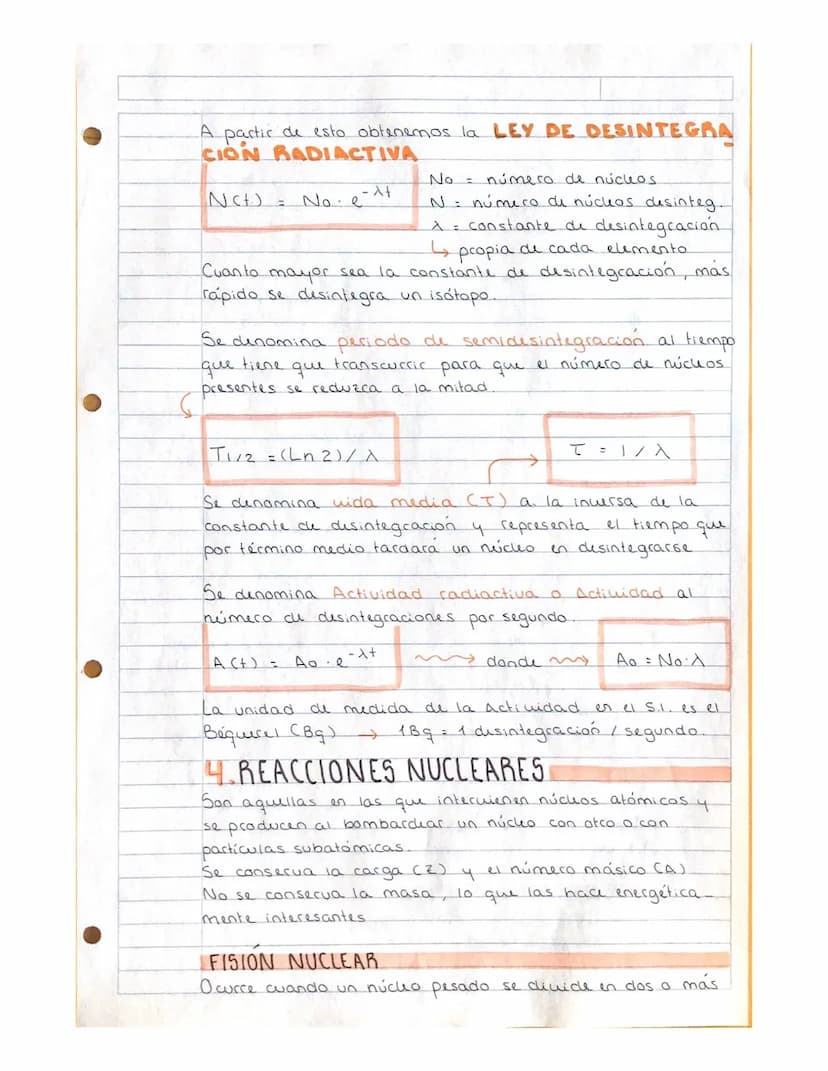 A partir de esto obtenemos la LEY DE DESINTEGRA
CIÓN RADIACTIVA
N(t) = No · e^-λt
No = número de núcleos
N = número de núcleos desinteg.
λ = constante de desintegración
↳ propia de cada elemento
Cuanto mayor sea la constante de desintegración, más
rápido se desintegra un isótopo.
Se denomina periodo de semidesintegración al tiempo
que tiene que transcurrir para que el número de núcleos
presentes se reduzca a la mitad.
T1/2 = (Ln 2) / λ
τ = 1 / λ
Se denomina vida media (τ) a la inversa de la
constante de desintegración y representa el tiempo que
por término medio tardará un núcleo en desintegrarse
Se denomina Actividad radiactiva o Actividad al
número de desintegraciones por segundo.
A(t) = Ao · e^-λt → donde → Ao = No·λ
La unidad de medida de la Actividad en el S.I. es el
Béquerel (Bq) → 1Bq = 1 desintegración / segundo.
4. REACCIONES NUCLEARES
Son aquellas en las que intervienen núcleos atómicos y
se producen al bombardear un núcleo con otro o con
partículas subatómicas.
Se conserva la carga (Z) y el número másico (A)
No se conserva la masa, lo que las hace energética-
mente interesantes
FISIÓN NUCLEAR
Ocurre cuando un núcleo pesado se divide en dos o más